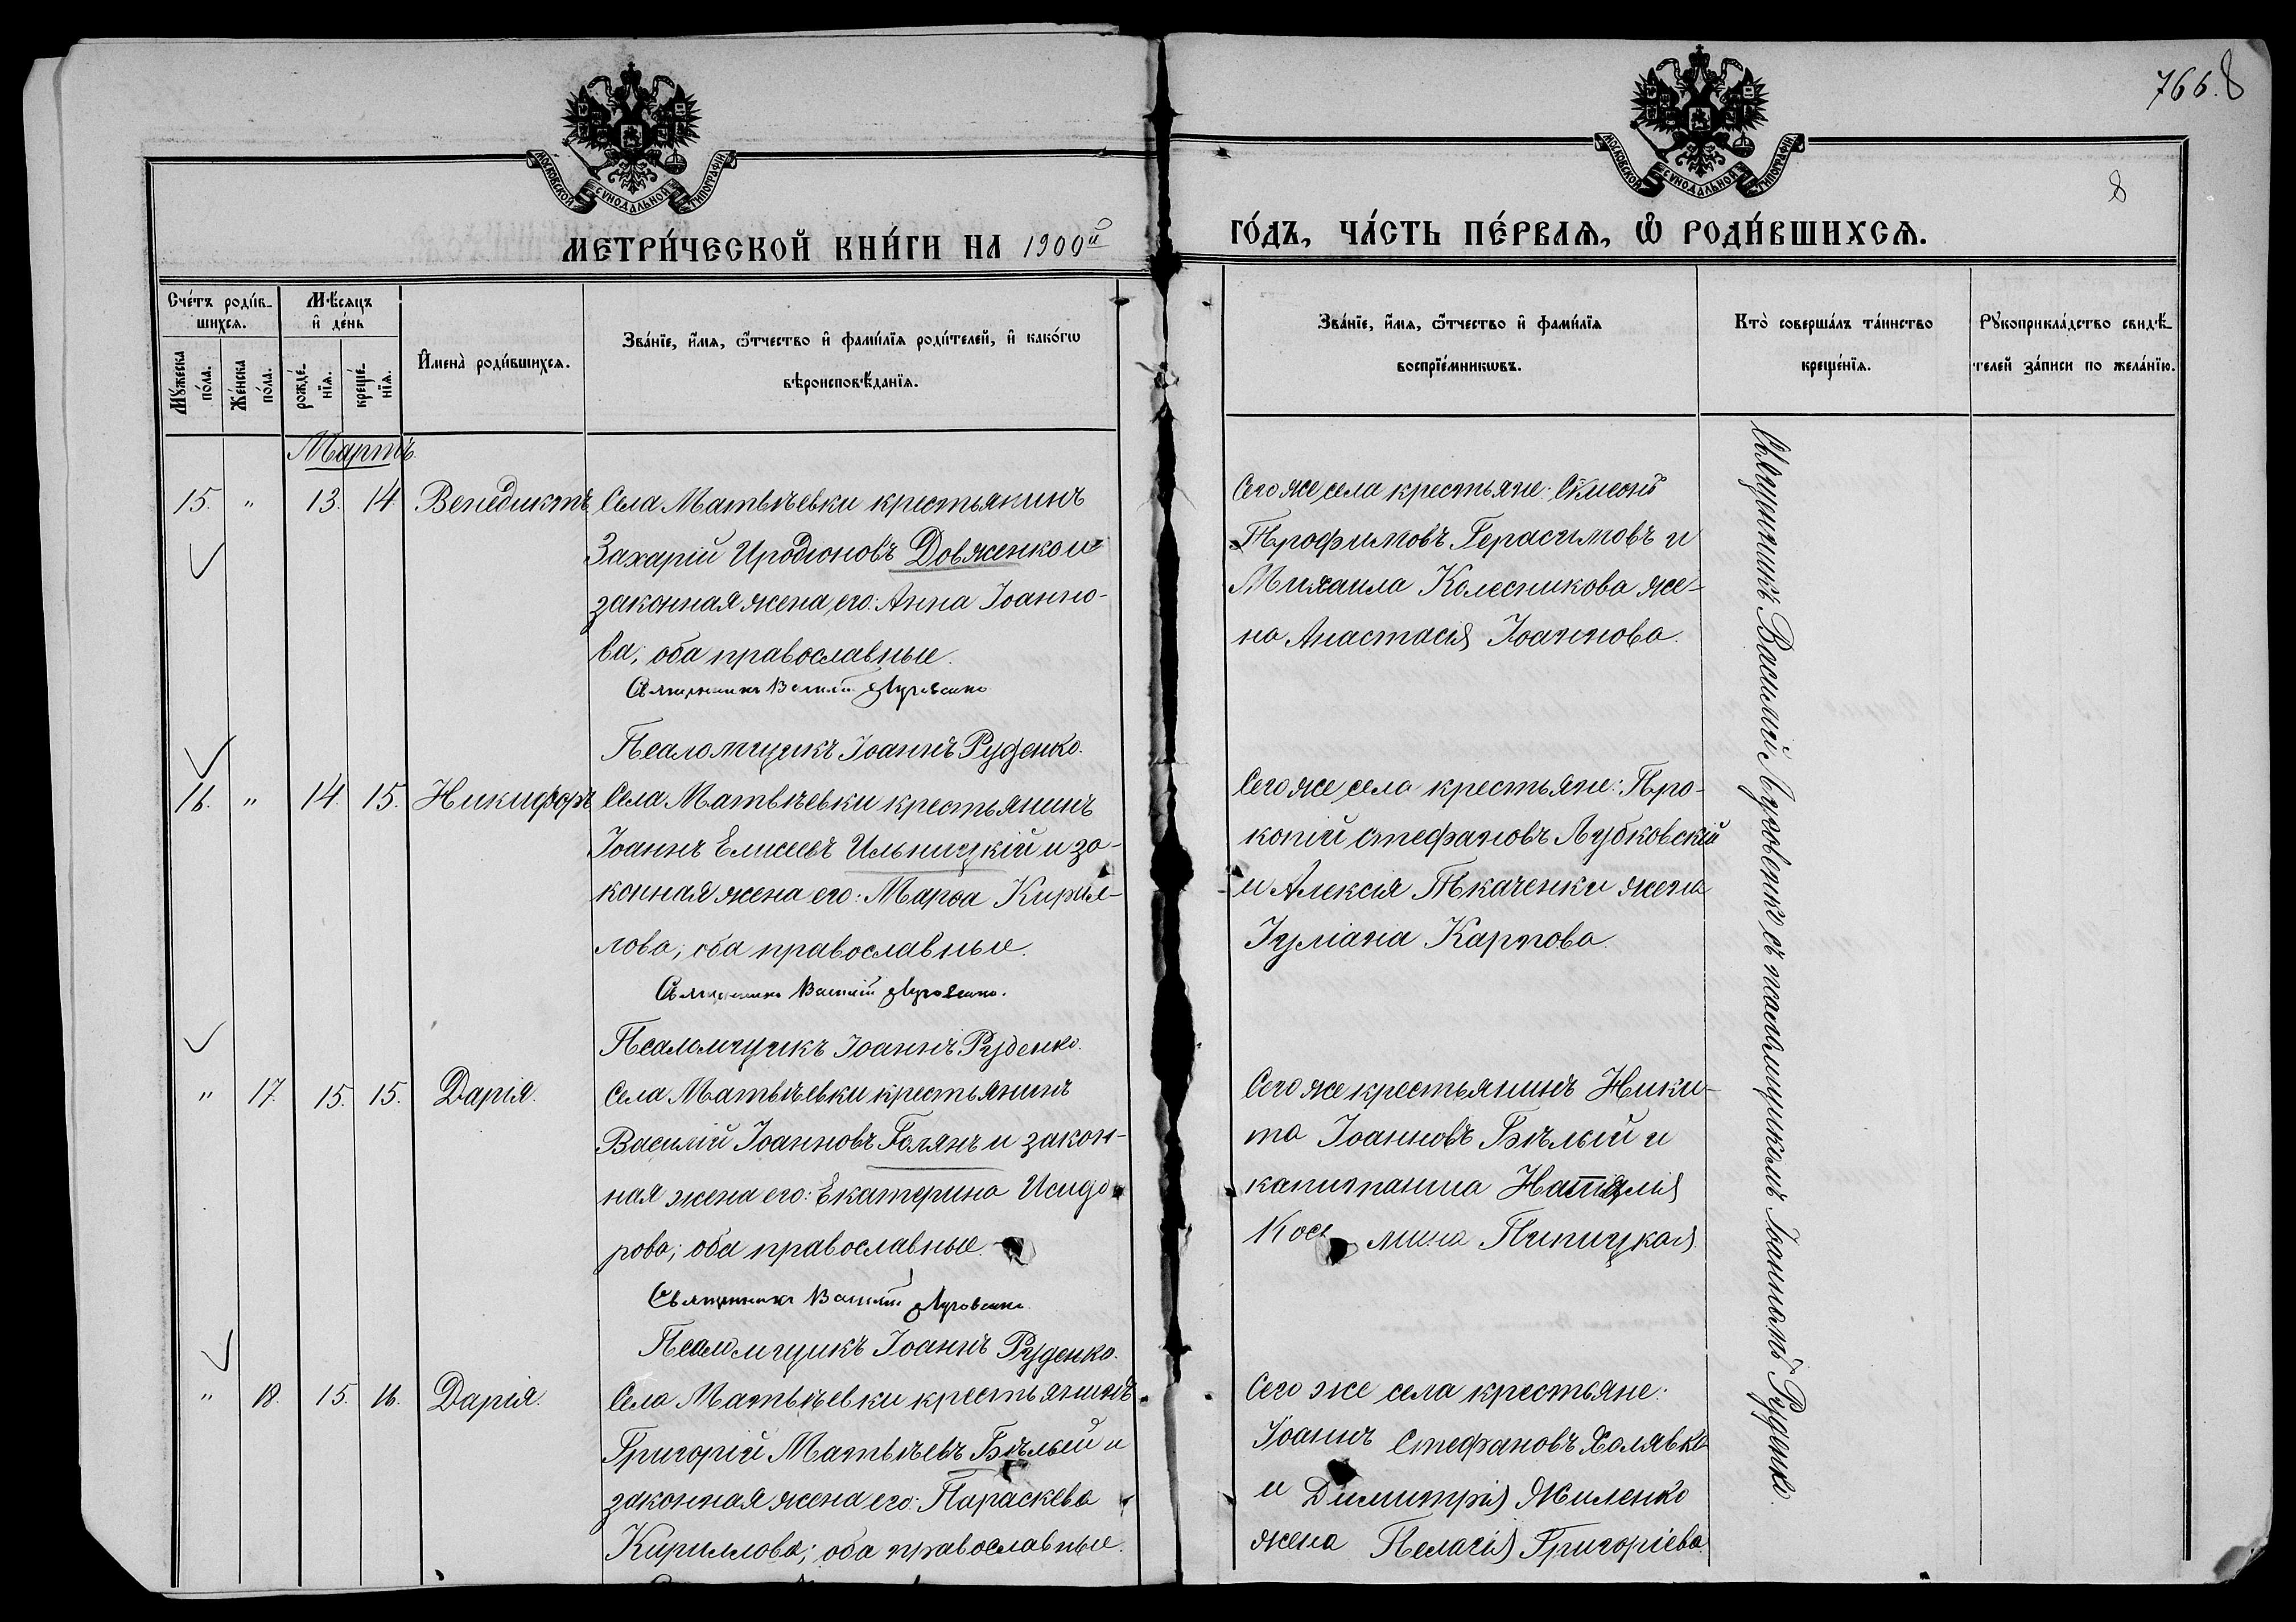 766. 8
8
МОСКОВСКОЙ СѴНОДАЛЬНОЙ ТИПОГРАФІИ
МОСКОВСКОЙ СѴНОДАЛЬНОЙ ТИПОГРАФІИ
МЕТРИ́ЧЕСКОЙ КНИ́ГИ НА 1909й
ГО́ДЪ, ЧА́СТЬ ПЕ́РВАѦ, Ѡ РОДИ́ВШИХСѦ.
Сче́тъ роди́в-
шихсѧ.
Мꙋ́жеска по́ла.
Же́нска по́ла.
Мѣ́сѧцъ
и де́нь
рожде́-
нїѧ.
креще́-
нїѧ.
Имена̀ роди́вшихсѧ.
Зва́нїе, и́мѧ, ѻ́тчество и фами́лїѧ роди́телей, и како́гѡ
вѣроисповѣ́данїѧ.
Зва́нїе, и́мѧ, ѻ́тчество и фами́лїѧ
воспрїе́мникѡвъ.
Кто̀ соверша́лъ та́инство
креще́нїѧ.
Рꙋкоприкла́дство свидѣ́-
телей за́писи по жела́нїю.
Мартъ.
15. " 13. 14. Венедиктъ
Села Матвѣевки крестьянинъ
Захарій Иродіоновъ Довженко и
законная жена его: Анна Іоанно-
ва; оба православные.
Священникъ Василій Луговенко
Псаломщикъ Іоаннъ Руденко.
Сего же села крестьяне: Сѵмеонъ
Трофимовъ Герасимовъ и
Михаила Колесникова же-
на Анастасія Іоаннова.
16. " 14. 15. Никифоръ
Села Матвѣевки крестьянинъ
Іоаннъ Елисеевъ Ильницкій и за-
конная жена его: Марѳа Кирил-
лова; оба православные.
Священникъ Василій Луговенко.
Псаломщикъ Іоаннъ Руденко.
Сего же села крестьяне: Про-
копій Стефановъ Лубковскій
и Алексія Ткаченки жена
Іуліана Карпова.
" 17. 15. 15. Дарія.
Села Матвѣевки крестьянинъ
Василій Іоанновъ Голянъ и закон-
ная жена его: Екатерина Исидо-
рова; оба православные.
Священникъ Василій Луговенко.
Псаломщикъ Іоаннъ Руденко.
Сего же крестьянинъ Ники-
та Іоанновъ Бѣлый и
капитанша Наталія
Косьмина Пипицкая.
" 18. 15. 16. Дарія.
Села Матвѣевки крестьянинъ
Григорій Матвѣевъ Бѣлый и
законная жена его: Параскева
Кириллова; оба православные.
Сего же села крестьяне:
Іоаннъ Стефановъ Халявко
и Димитрія Жиленко
жена Пелагія Григоріева.
Священникъ Василій Луговенко съ псаломщикомъ Іоанномъ Руденко.